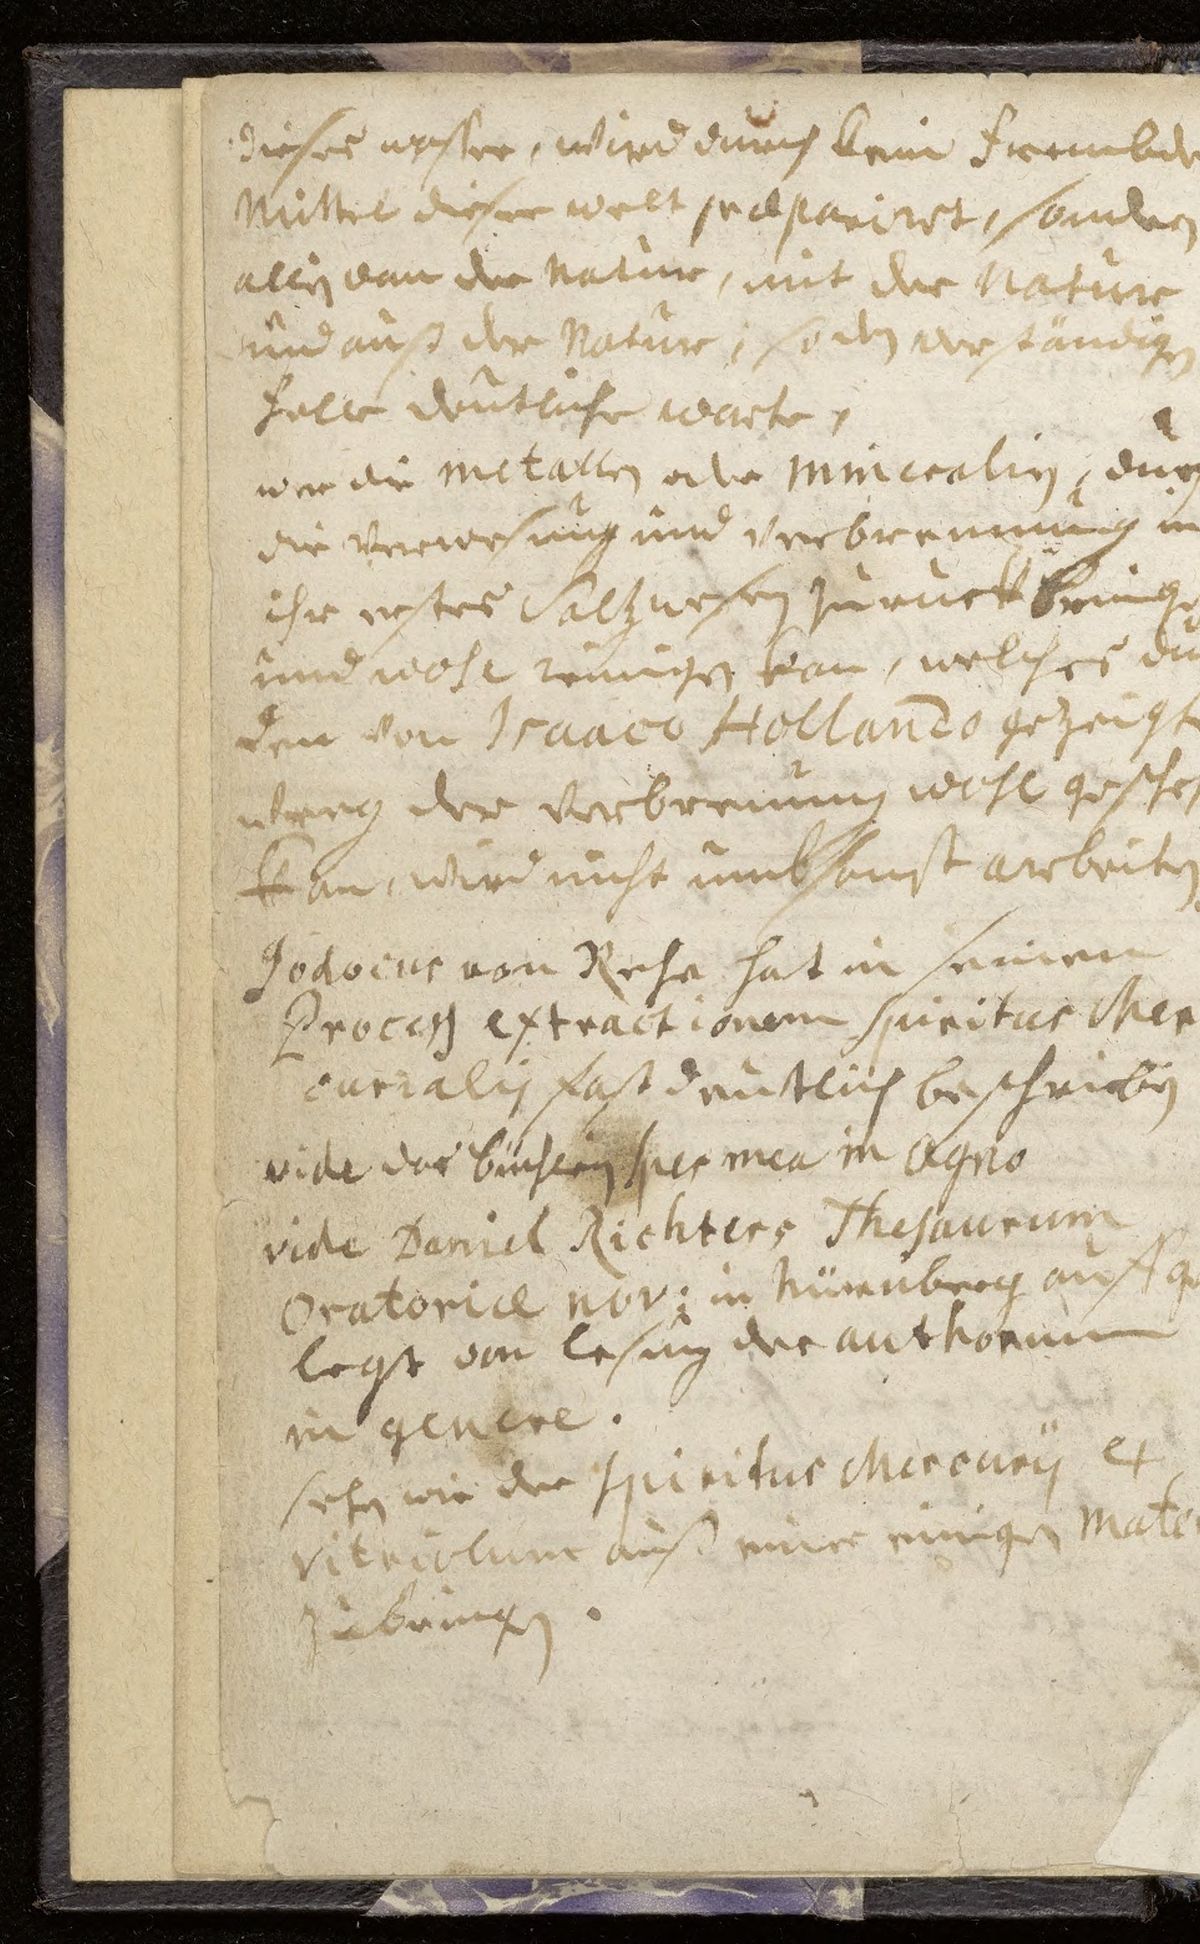 dieses wasser, wird durch kein frembde
Mittel dieser welt præpariret, sondern
allein von der Natur, mit der Natur
und auß der Natur, so den verständigen
helle deutliche worte,
wer die metallen oder Mineralien, durch
die verwesung und verbrennung in
ihr erstes Saltzwesen zuruckbringe
und wohl reinigen kan, welches du
den von Isaaco Hollando gezeigte
weeg der verbrennung wohl gesche
kan, wird nicht umbsonst arbeiten.
Jodocus von Rehe hat in seinem
Process extractionem spiritus Mer
curialis fast deutlich beschrieben
vide das büchlein spes mea in Agno
vide Daniel Richters Thesaurum
Oratoriæ nov: in Nürnberg auffge
legt von lesung der authorum
in genere.
sehen wie der spiritus Mercurij et
vitriolum auß einer einigen mate
zubringen.